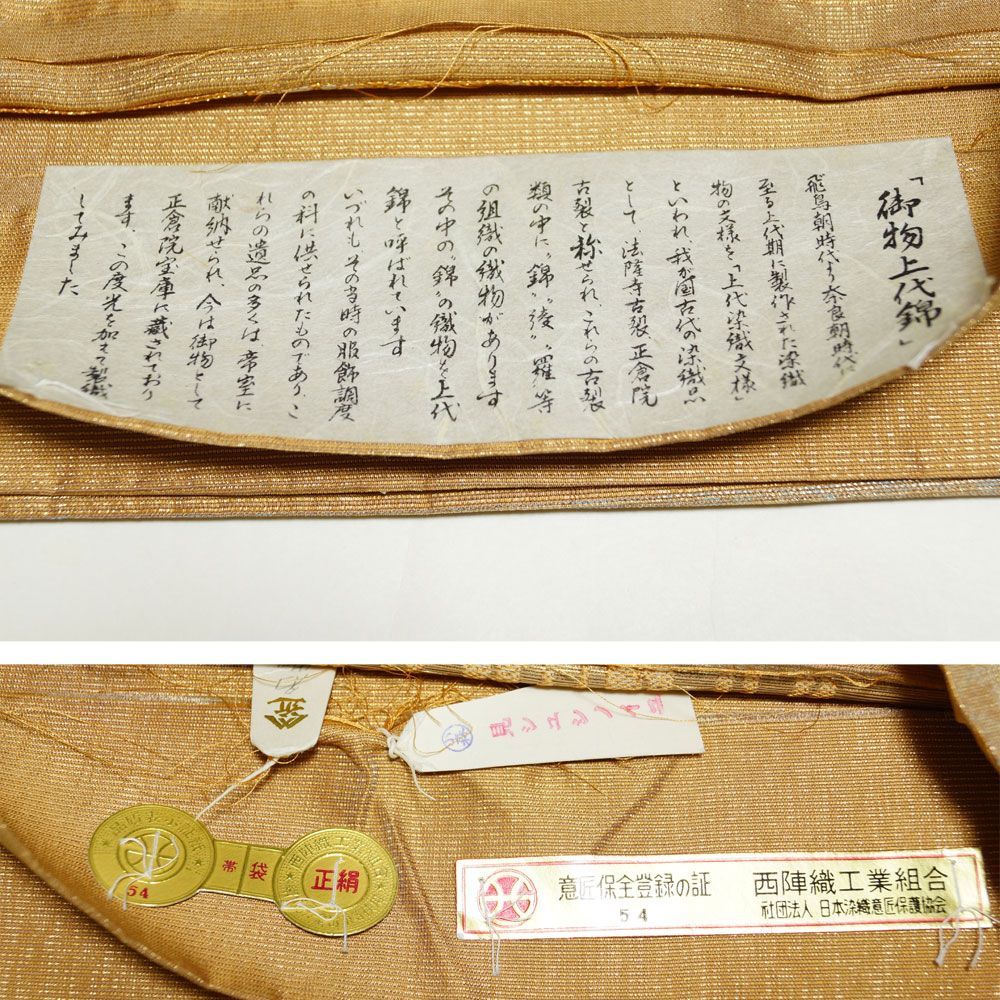 「御物上代錦」
飛鳥朝時代より奈良朝時代に
至る上代期に製作された染織
物の文様を「上代染織文様」
といわれ、我が国古代の染織品
として、法隆寺古裂、正倉院
古裂と称せられ、これらの古裂
類の中に、"錦""綾""羅"等
の組織の織物があります
その中の"錦"の織物を上代
錦と呼ばれています
いづれもその当時の服飾調度
の料に供せられたものであり、こ
れらの遺品の多くは帝室に
献納せられ、今は御物として
正倉院宝庫に蔵されており
ます、この度光を加えて製織
してみました
見ジユシノイ
54
帯 袋
西陣織工業組合
正絹
意匠保全登録の証
54
西陣織工業組合
社団法人 日本染織意匠保護協会